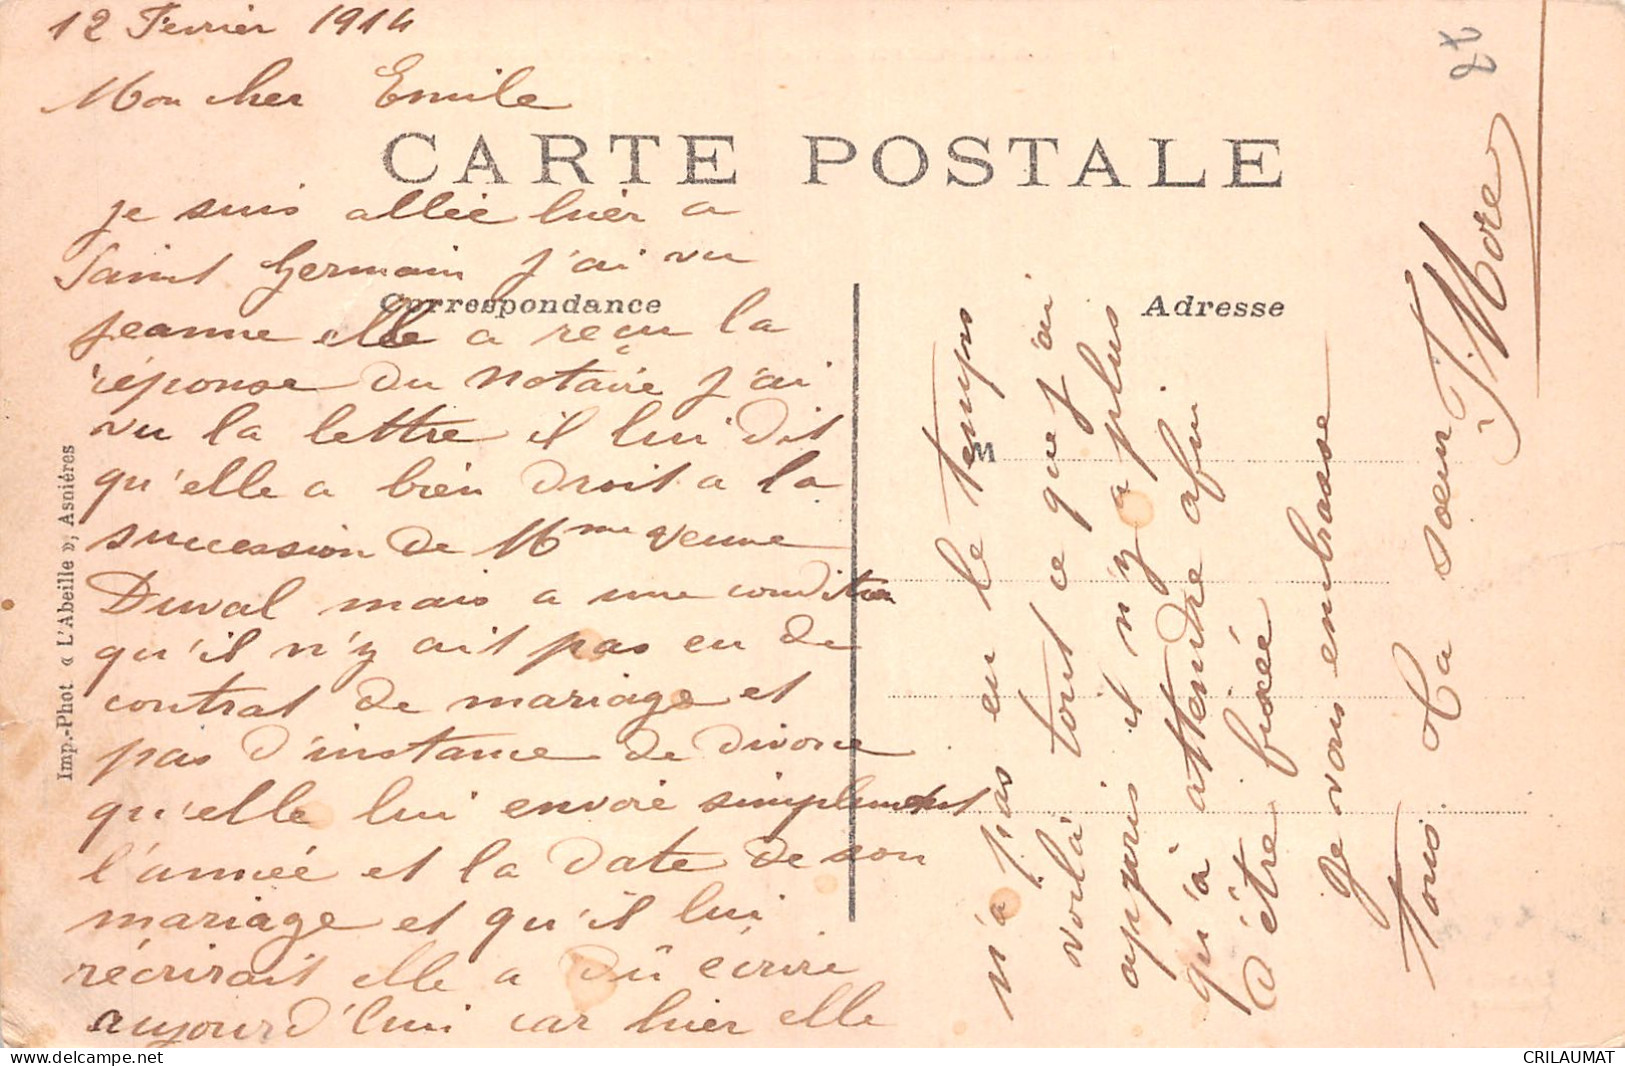 12 Fevrier 1914
Mon cher Emile
CARTE POSTALE
je suis allée hièr a
Saint Germain j'ai vu
Correspondance
Jeanne elle a reçu la
réponse du Notaire j'ai
vu la lettre il lui dit
qu'elle a bièn droit a la
succession de Mme veuve
Duval mais a une condition
qu'il n'y ait pas eu de
contrat de mariage et
pas d'instance de divorce
qu'elle lui envoie simplement
l'année et la date de son
mariage et qu'il lui
récrirait elle a dû écrire
aujourd'hui car hièr elle
Imp.-Phot « L'Abeille », Asnières
Adresse
M
n'a pas eu le temps
voilà tout ce que j'ai
appris il n'y a plus
qu'à attendre afin
d'être fixée
Je vous embrasse
tous. Ta soeur
J. More
CRILAUMAT